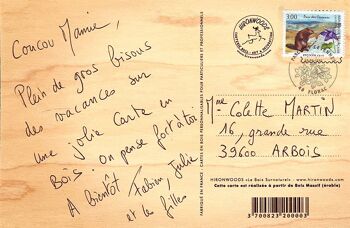 Coucou Mamie,
Plein de gros bisous
des vacances sur
une jolie carte en
Bois. on pense fort à toi
A bientôt Fabien, Julie
et les filles
CARTES EN BOIS PERSONNALISABLES POUR PARTICULIERS ET PROFESSIONNELS
HIRONWOODS
3,00
Parc des Cévennes
48 FLORAC
Mme Colette MARTIN
16, grande rue
39600 ARBOIS
HIRONWOODS «Le Bois Surnaturel» www.hironwoods.com
Cette carte est réalisée à partir de Bois Massif (érable)
3 700823 200003